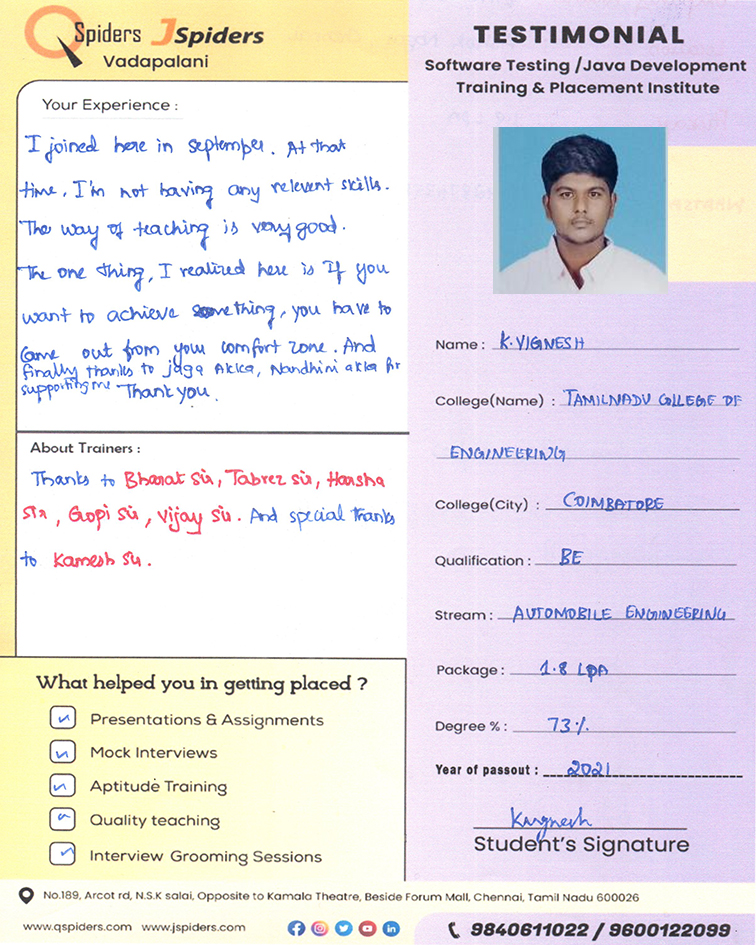 QSpiders JSpiders
Vadapalani
Your Experience :
I joined here in september. At that
time, I'm not having any relevent skills.
The way of teaching is very good.
The one thing, I realized here is If you
want to achieve something, you have to
come out from your comfort zone. And
finally thanks to jaga Akka, Nandhini akka for
supporting me Thank you.
About Trainers :
Thanks to Bharat Sir, Tabrez sir, Harsha
Sir, Gopi Sir, Vijay Sir. And special thanks
to Kamesh Sir.
What helped you in getting placed ?
Presentations & Assignments
Mock Interviews
Aptitude Training
Quality teaching
Interview Grooming Sessions
TESTIMONIAL
Software Testing /Java Development
Training & Placement Institute
Name : K.VIGNESH
College(Name) : TAMILNADU COLLEGE OF
ENGINEERING
College(City) : COIMBATORE
Qualification : BE
Stream : AUTOMOBILE ENGINEERING
Package : 1.8 LPA
Degree % : 73%
Year of passout : 2021
Student's Signature
No.189, Arcot rd, N.S.K salai, Opposite to Kamala Theatre, Beside Forum Mall, Chennai, Tamil Nadu 600026
www.qspiders.com www.jspiders.com
9840611022 / 9600122099